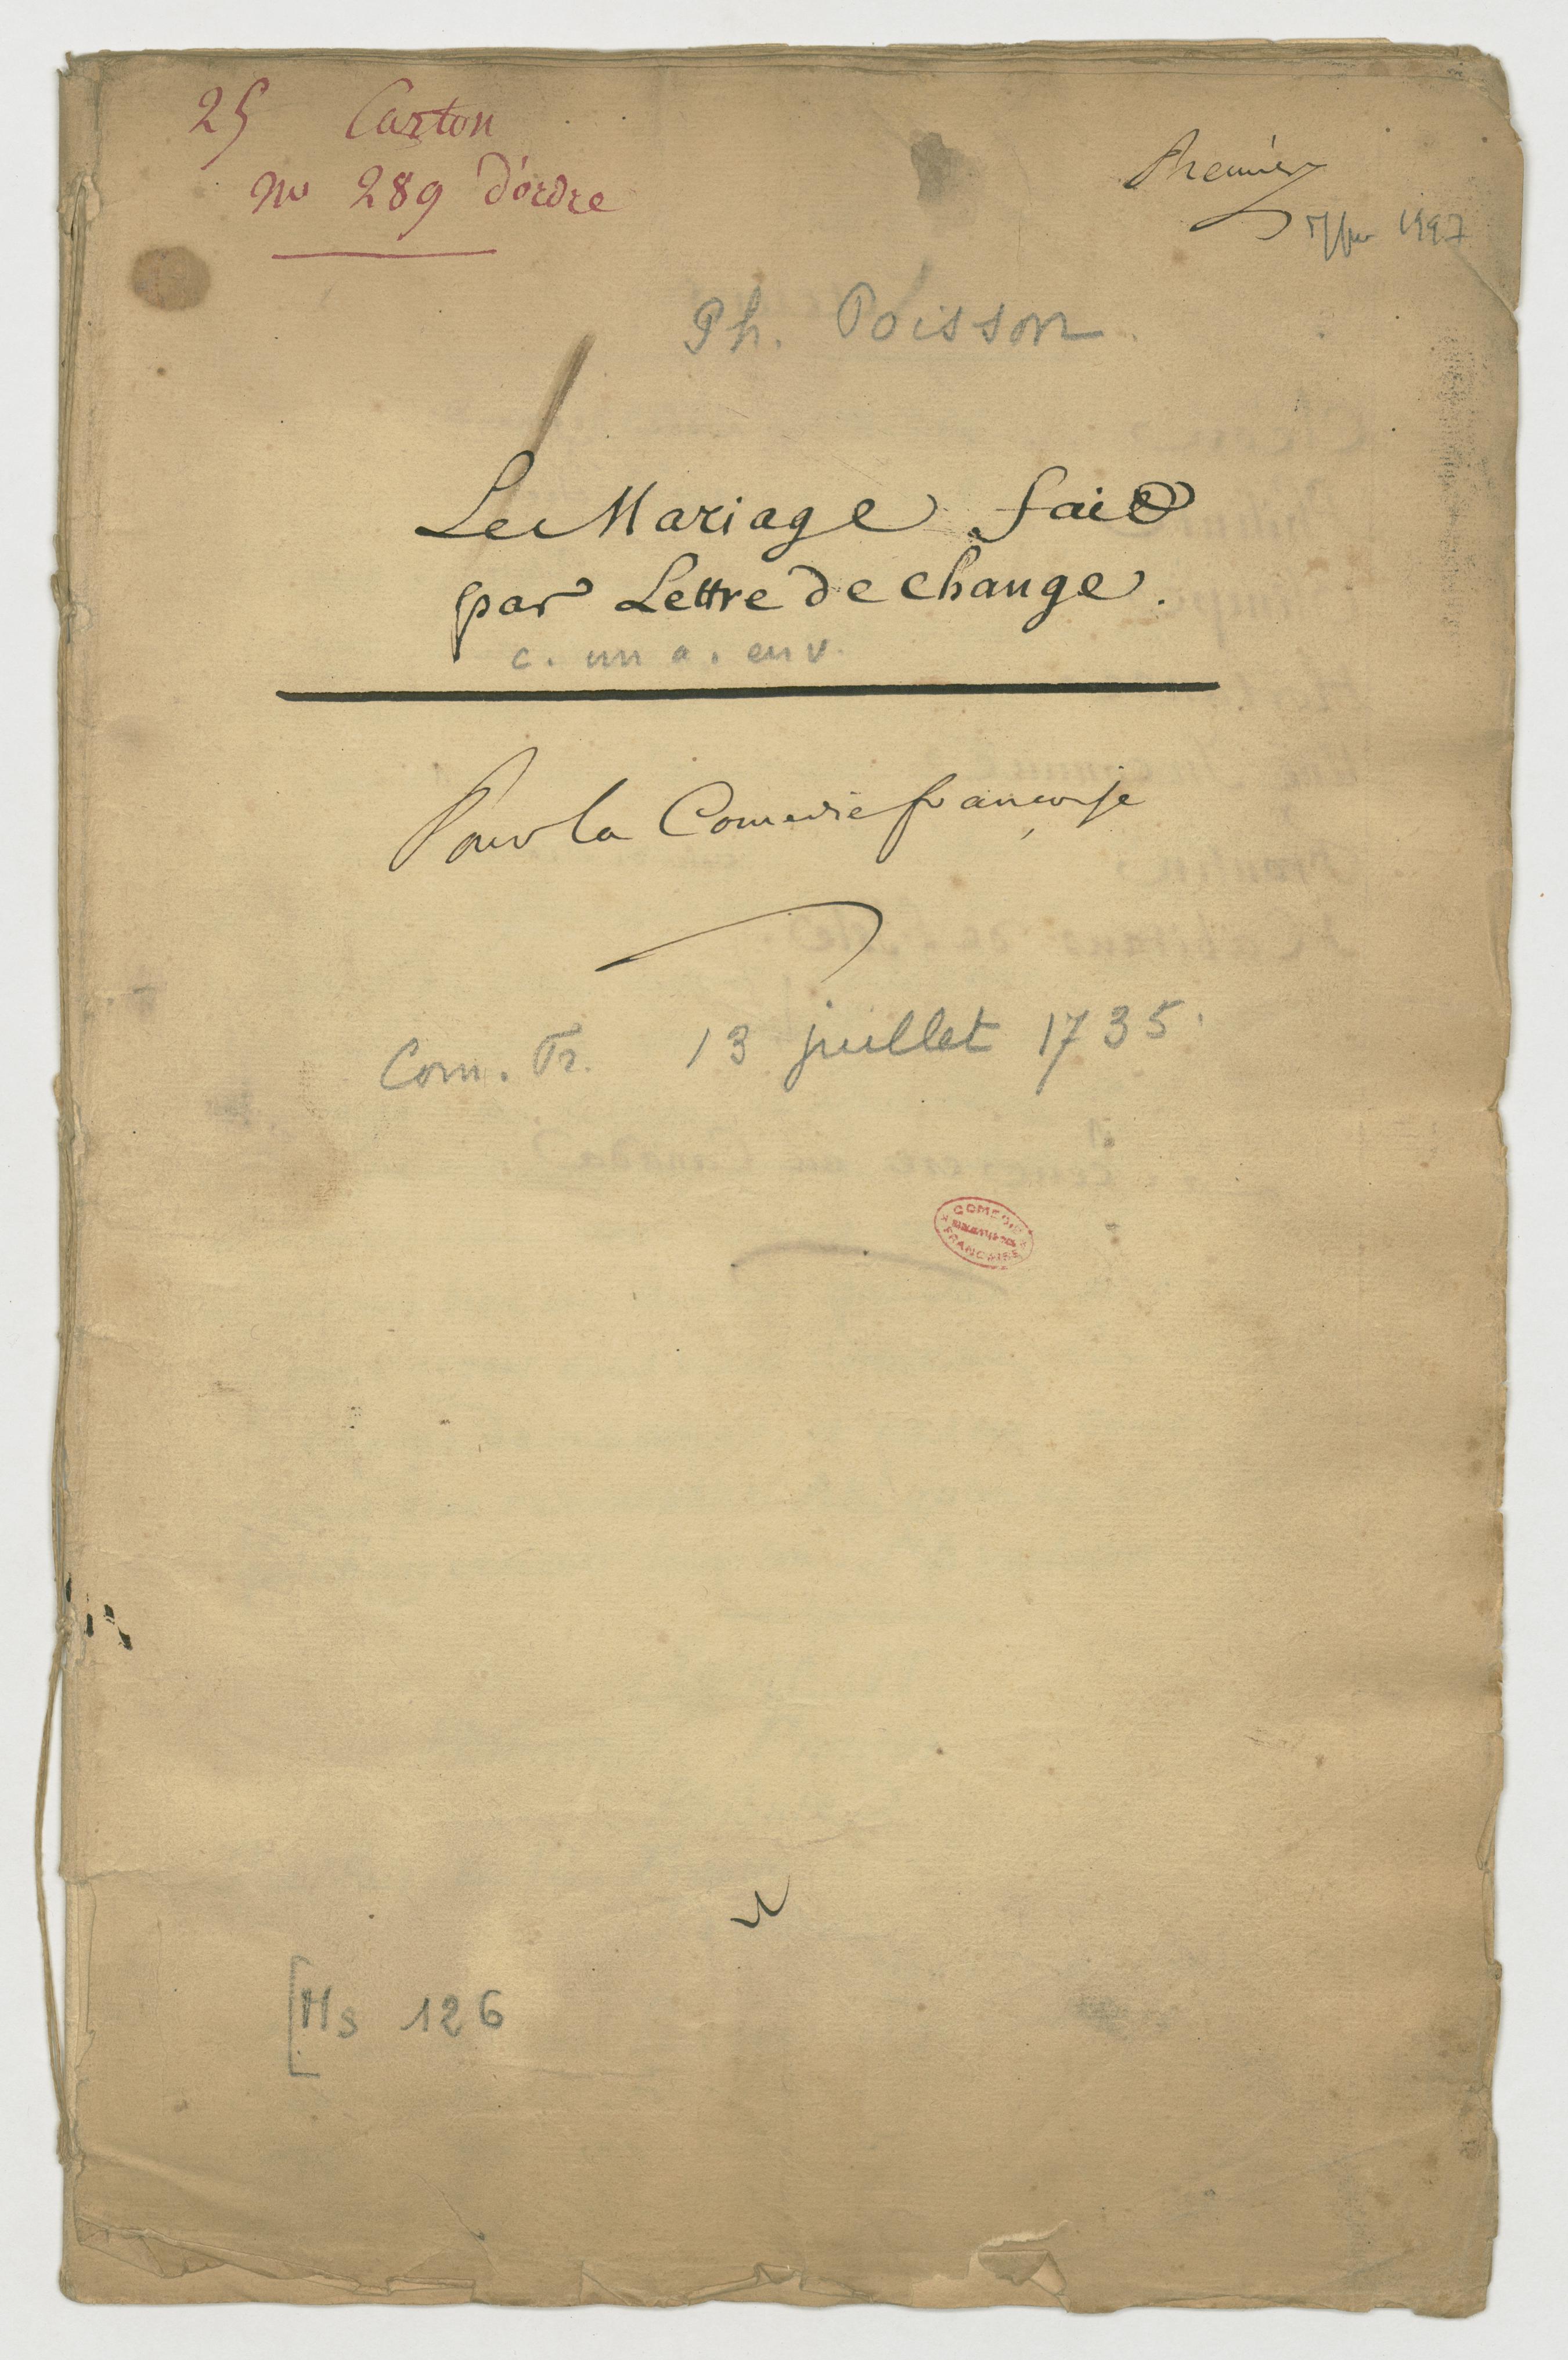 25 Carton
no 289 d'ordre
Premier
1997
Ph. Poisson
Le Mariage fait
par Lettre de change.
c. un a. en v.
Pour la Comedie françoise
Com. Fr. 13 juillet 1735.
COMEDIE
FRANÇAISE
Ms 126